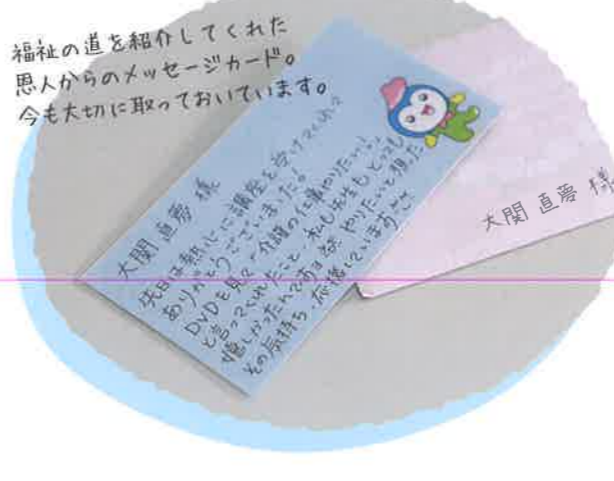 福祉の道を紹介してくれた
恩人からのメッセージカード。
今も大切に取っておいています。
大関 直夢 様
先日は熱心に講座を受けてくれて
ありがとうございました。
DVDを見て“介護の仕事やりたい!”
と言ってくれたこと、私も先生も とっても
嬉しかったんです やりたいと想った
その気持ち、応援しています
大関 直夢 様